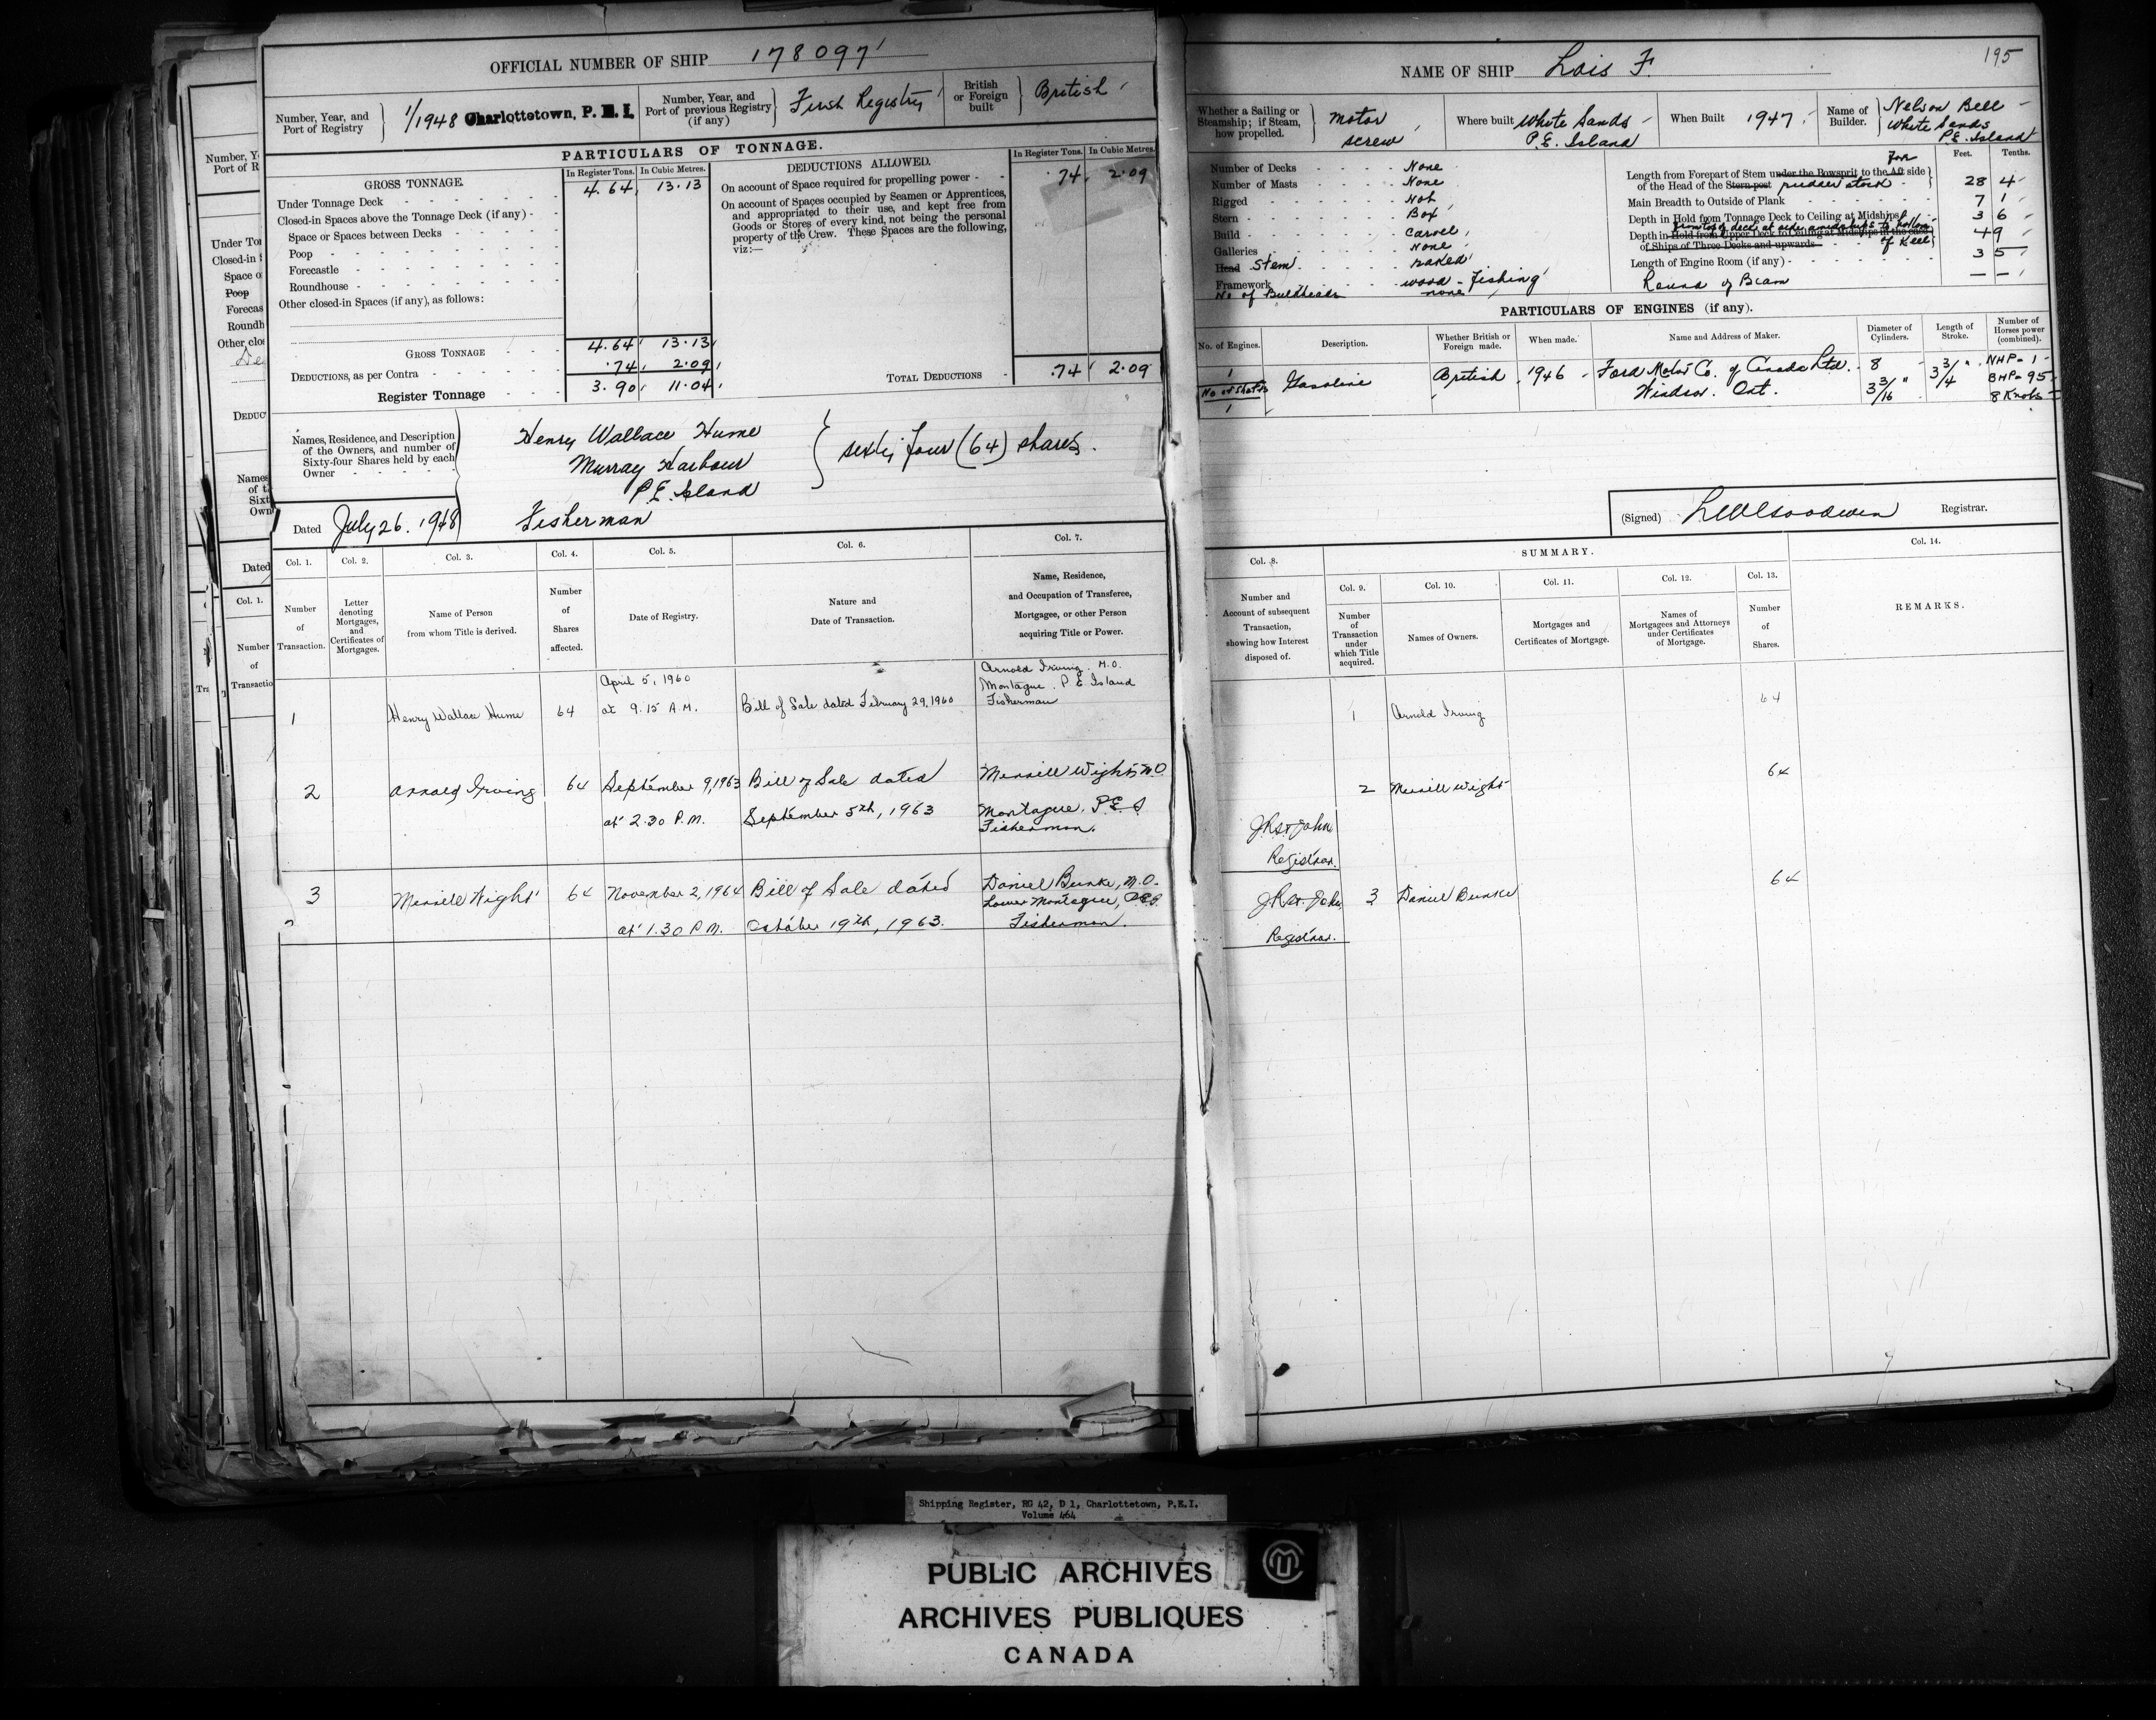 OFFICIAL NUMBER OF SHIP 178097
Number, Year, and
Port of Registry
1/1948 Charlottetown, P. E. I.
Number, Year, and
Port of previous Registry
(if any)
First Registry
British
or Foreign
built
British
PARTICULARS OF TONNAGE.
GROSS TONNAGE.
In Register Tons. In Cubic Metres.
Under Tonnage Deck 4.64 13.13
Closed-in Spaces above the Tonnage Deck (if any)
Space or Spaces between Decks
Poop
Forecastle
Roundhouse
Other closed-in Spaces (if any), as follows:
GROSS TONNAGE 4.64 13.13
DEDUCTIONS, as per Contra .74 2.09
Register Tonnage 3.90 11.04
DEDUCTIONS ALLOWED.
In Register Tons. In Cubic Metres.
On account of Space required for propelling power .74 2.09
On account of Spaces occupied by Seamen or Apprentices,
and appropriated to their use, and kept free from
Goods or Stores of every kind, not being the personal
property of the Crew. These Spaces are the following,
viz:—
TOTAL DEDUCTIONS .74 2.09
Names, Residence, and Description
of the Owners, and number of
Sixty-four Shares held by each
Owner
Henry Wallace Hume
Murray Harbour
P.E. Island
Fisherman
sixty four (64) shares.
Dated July 26. 1948
Col. 1. Col. 2. Col. 3. Col. 4. Col. 5. Col. 6. Col. 7.
Number
of
Transaction.
Letter
denoting
Mortgages,
and
Certificates of
Mortgages.
Name of Person
from whom Title is derived.
Number
of
Shares
affected.
Date of Registry.
Nature and
Date of Transaction.
Name, Residence,
and Occupation of Transferee,
Mortgagee, or other Person
acquiring Title or Power.
1 Henry Wallace Hume 64
April 5, 1960
at 9.15 A.M.
Bill of Sale dated February 29, 1960
Arnold Irving. M.O.
Montague. P.E. Island
Fisherman
2 Arnold Irving 64
September 9, 1963
at 2.30 P.M.
Bill of Sale dated
September 5th, 1963
Merrill Wight, M.O
Montague, P.E.I
Fisherman.
3 Merrill Wight 64
November 2, 1964
at 1.30 P.M.
Bill of Sale dated
October 19th, 1963.
Daniel Bunke, M.O.
Lower Montague, P.E.I.
Fisherman.
195
NAME OF SHIP Lois F.
Whether a Sailing or
Steamship; if Steam,
how propelled.
Motor
screw
Where built White Sands
P.E. Island
When Built 1947
Name of
Builder.
Nelson Bell
White Sands
P.E. Island
Number of Decks None
Number of Masts None
Rigged Not
Stern Box
Build Carvel
Galleries None
Head Stem raked
Framework wood - fishing
No of Bulkheads none
Feet. Tenths.
Length from Forepart of Stem under the Bowsprit to the Aft Fore side
of the Head of the Stern-post rudder stock 28 4
Main Breadth to Outside of Plank 7 1
Depth in Hold from Tonnage Deck to Ceiling at Midships 3 6
from top of deck at side amidships to bottom
Depth in Hold from Upper Deck to Ceiling at Midships in the case
of Ships of Three Decks and upwards of Keel 4 9
Length of Engine Room (if any) 3 5
Round of Beam — —
PARTICULARS OF ENGINES (if any).
No. of Engines.
Description.
Whether British or
Foreign made.
When made.
Name and Address of Maker.
Diameter of
Cylinders.
Length of
Stroke.
Number of
Horses power
(combined).
1
No of Shafts
1
Gasoline
British
1946
Ford Motor Co. of Canada Ltd.
Windsor. Ont.
8
3 3/16"
3 3/4"
NHP - 1
BHP - 95
8 Knots
(Signed) Registrar.
Col. 8.
Number and
Account of subsequent
Transaction,
showing how Interest
disposed of.
SUMMARY.
Col. 9. Col. 10. Col. 11. Col. 12. Col. 13.
Number
of
Transaction
under
which Title
acquired.
Names of Owners.
Mortgages and
Certificates of Mortgage.
Names of
Mortgagees and Attorneys
under Certificates
of Mortgage.
Number
of
Shares.
Col. 14.
REMARKS.
1 Arnold Irving 64
2 Merrill Wight 64
J R St. John
Registrar.
3 Daniel Bunke 64
J R St. John
Registrar.
Number, Y
Port of R
Under Ton
Closed-in S
Space o
Poop
Forecas
Roundh
Other clos
DEDUC
Names
of t
Sixt
Own
Dated
Col. 1.
Number
of
Transactio
Shipping Register, RG 42, D 1, Charlottetown, P.E.I.
Volume 464
PUBLIC ARCHIVES
ARCHIVES PUBLIQUES
CANADA